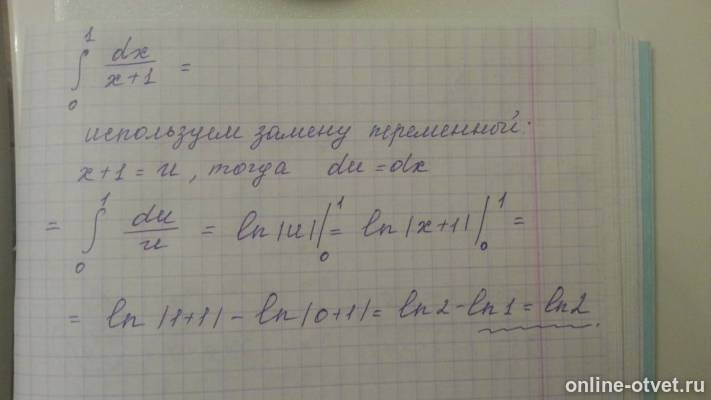 ∫₀¹ dx/(x+1) =
используем замену переменной.
x+1 = u, тогда du = dx
= ∫₀¹ du/u = ln|u| |₀¹ = ln|x+1| |₀¹ =
= ln|1+1| - ln|0+1| = ln2 - ln1 = ln2.
online-otvet.ru